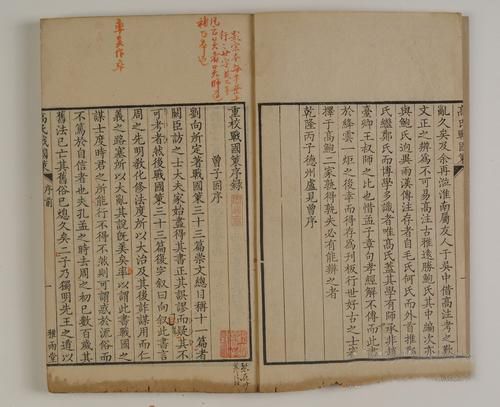 高氏戰國策
亂久矣及余再涖淮南屬友人于吳中借高注考之歎
文正之辨為不可易高注古雅遠勝鮑氏其中編次亦
與鮑氏迥異兩漢傳注存者自毛氏何氏而外首推鄭
氏繼鄭氏而博學多識者唯高氏蓋其學有師承非趙
臺卿王叔師之比也惜孟子章句孝經解不傳而此書
於絳雲一炬之後幸而得存為刊板行世好古之士審
擇于高鮑二家孰得孰失必有能辨之者
乾隆丙子德州盧見曾序
重校戰國策序錄
曾子固序
劉向所定著戰國策三十三篇崇文總目稱十一篇者
闕臣訪之士大夫家始盡得其書正其誤謬而疑其不
可考者然後戰國策三十三篇復完敘曰向敘此書言
周之先明敎化修法度所以大治及其後詐謀用而仁
義之路塞所以大亂其說旣美矣卒以謂此書戰國之
謀士度時君之所能行不得不然則可謂惑於流俗而
不篤於自信者也夫孔孟之時去周之初已數百歲其
舊法已亡其舊俗已熄久矣二子乃獨明先王之道以
高氏戰國策
序前
一
雅雨堂